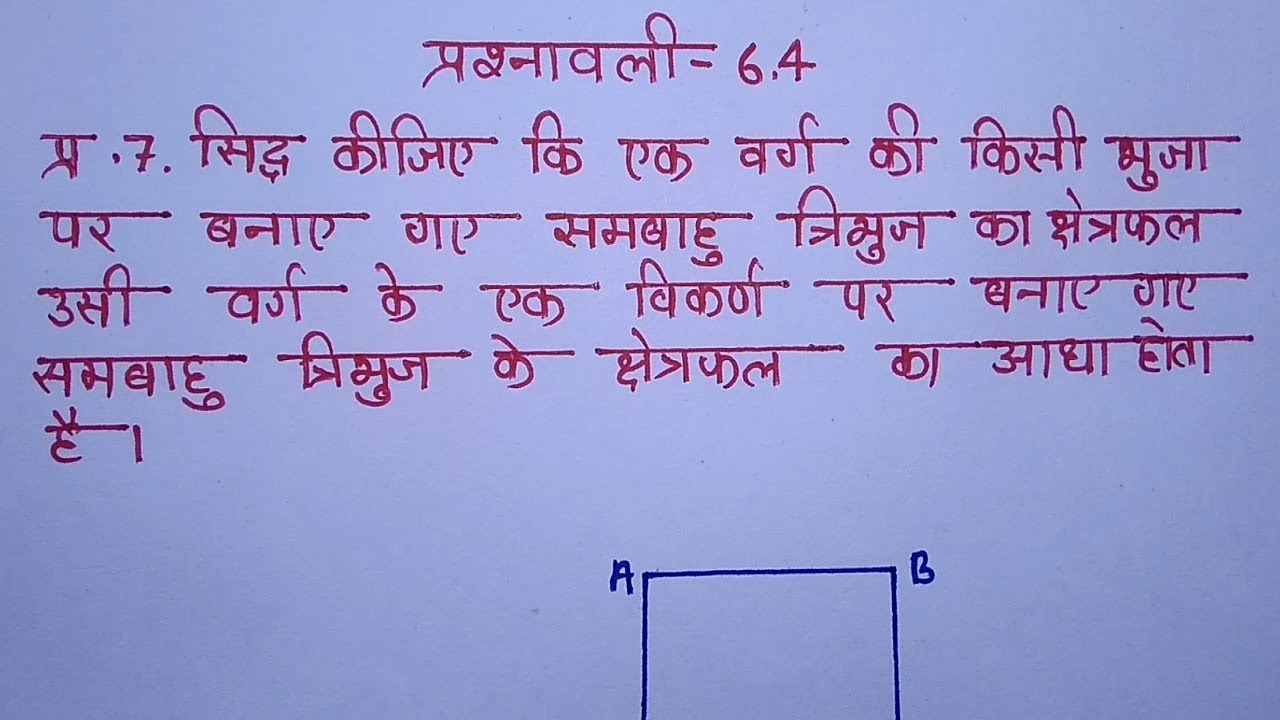 प्रश्नावली- 6.4
प्र.7. सिद्ध कीजिए कि एक वर्ग की किसी भुजा
पर बनाए गए समबाहु त्रिभुज का क्षेत्रफल
उसी वर्ग के एक विकर्ण पर बनाए गए
समबाहु त्रिभुज के क्षेत्रफल का आधा होता
है।
A B